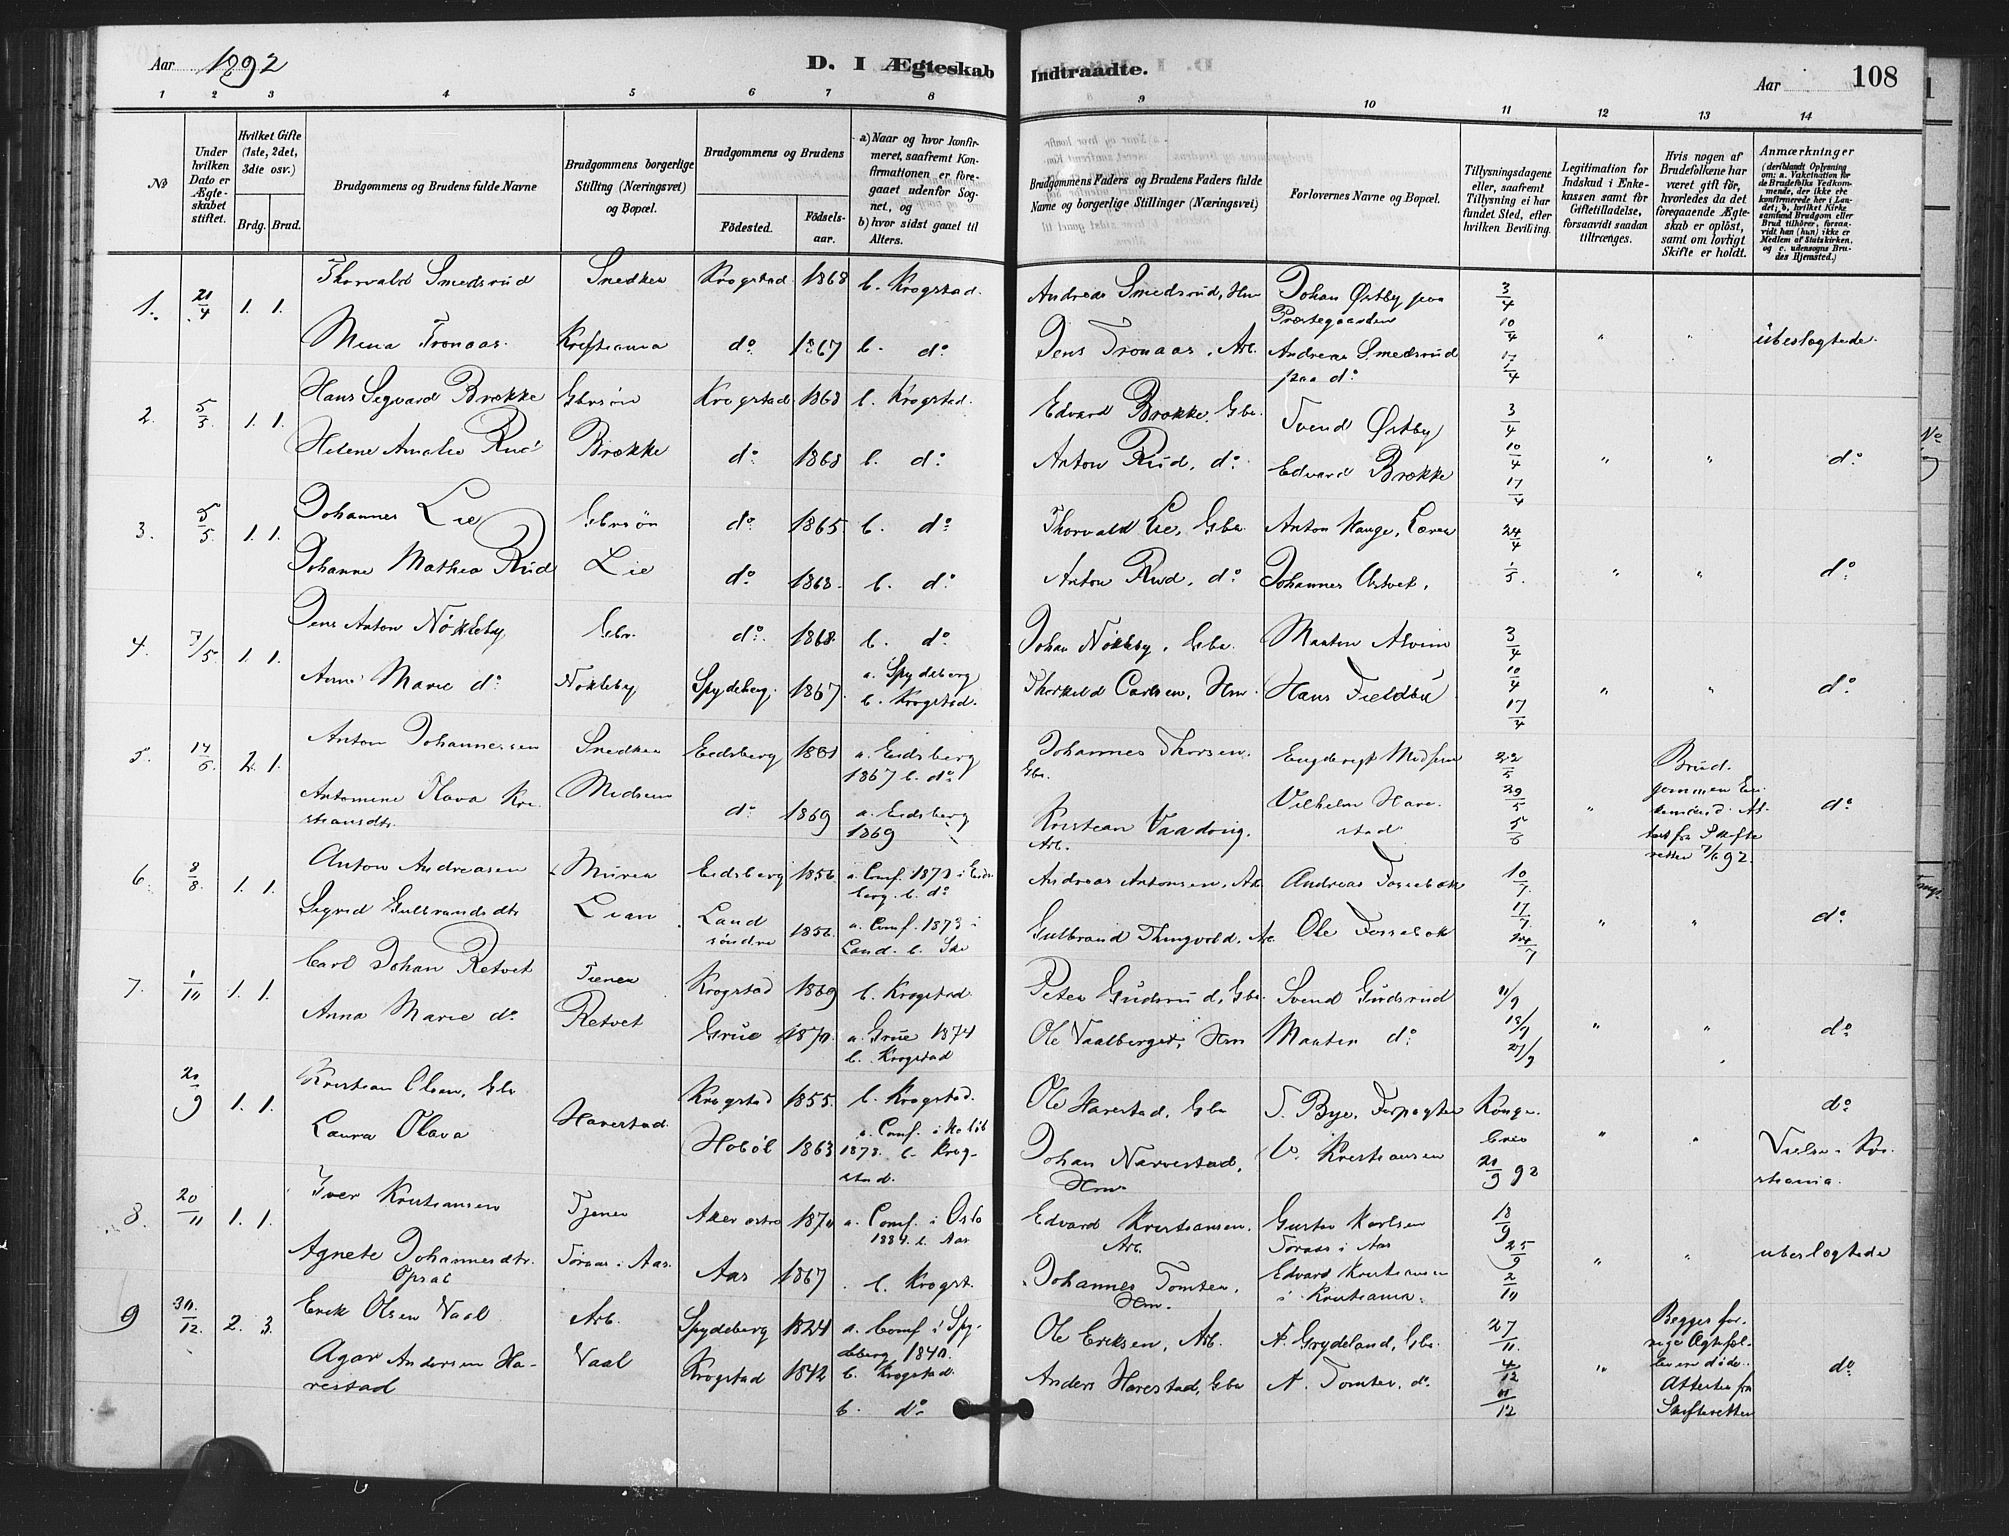 Aar 1892
D. I Ægteskab Indtraadte.
Aar 108
1 2 3 4 5 6 7 8 9 10 11 12 13 14
No
Under hvilken Dato er Ægteskabet stiftet.
Hvilket Gifte (1ste, 2det, 3die osv.)
Brdg. Brud.
Brudgommens og Brudens fulde Navne
Brudgommens borgerlige Stilling (Næringsvei) og Bopæl.
Brudgommens og Brudens
Fødested.
Fødselsaar.
a) Naar og hvor konfirmeret, saafremt Konfirmationen er foregaaet udenfor Sognet, og
b) hvor sidst gaaet til Alters.
Brudgommens Faders og Brudens Faders fulde Navne og borgerlige Stillinger (Næringsvei)
Forlovernes Navne og Bopæl.
Tillysningsdagene eller, saafremt Tillysning ei har fundet Sted, efter hvilken Bevilling.
Legitimation for Indskud i Enkekassen samt for Giftetilladelse, forsaavidt saadan tiltrænges.
Hvis nogen af Brudefolkene har været gift før, hvorledes da det foregaaende Ægteskab er opløst, samt om lovligt Skifte er holdt.
Anmærkninger
(deriblandt Oplysning om: a. Vakcination for de Brudefolks Vedkommende, der ikke ere konfirmerede her i Landet; b. hvilket Kirkesamfund Brudgom eller Brud tilhører, forsaavidt han (hun) ikke er Medlem af Statskirken, og c. udensogns Brudes Hjemsted.)
1. 21/4 1. 1. Thorvald Smedsrud Snedker Krogstad 1868 b. Krogstad. Andreas Smedsrud, Hm Johan Østby paa Præstegaarden 3/4
Mina Tronaas. Kristiania do. 1867 b. do. Jens Tronaas, Arb. Andreas Smedsrud paa do. 10/4 17/4 " " ubeslægtede.
2. 5/5. 1. 1. Hans Segvard Brække Gbrsøn Krogstad 1868 b. Krogstad. Edvard Brække, Gbr. Svend Østby 3/4
Helene Amalie Rud Brække do. 1868 b. do. Anton Rud, do. Edvard Brække 10/4 17/4 " " do.
3. 5/5. 1. 1. Johannes Lie Gbrsøn do. 1865. b. do. Thorvald Lie, Gbr. Anton Hauge, Lærer 24/4
Johanne Mathea Rud Lie do. 1868. b. do. Anton Rud, do. Johannes 1/5. " " do.
4. 7/5. 1. 1. Jens Anton Nökleby Gbr. do. 1868. b. do. Johan Nökleby, Gbr. Martin Alvim 3/4
Anne Marie do. Nökleby Spydeberg. 1867. a. Spydeberg b. Krogstad. Thorkild Carlsen, Hm. Hans 10/4 17/4 " " do.
5. 14/6. 2. 1. Anton Johannessen Snedker Eidsberg 1851 a. Eidsberg 1867 b. do. Johannes Thorsen. Gbr. 22/5 Brud-
Antomine Olava Kristiansdtr. do. 1869 a. Eidsberg 1869 Kristian Arb. Vilhelm Harestad 29/5 5/6 " gommen Enkemand. Attest fra Skifteretten 7/6 92. do.
6. 8/8. 1. 1. Anton Andreasen Murer Eidsberg 1856 a. Conf. 1873 i Eidsberg. b. do. Andreas Antonsen, Arb. Andreas Fossebæk 10/7.
Sigrid Gulbrandsdtr Lian Land søndre 1856. a. Conf. 1873 i Land. b. Ski Gulbrand Thingvold, Arb. Ole Fossebæk 17/7 24/7 " " do.
7. 1/10 1. 1. Carl Johan Retvet Tjener Krogstad 1869 b. Krogstad. Peter Gudsrud, Gbr. Svend Gudsrud 11/9
Anna Marie do. Retvet Grue 1870. a. Grue 1874 b. Krogstad Ole Vaalberget, Hm Martin do. 18/9 25/9 " " do.
20/9 1. 1. Kristian Olsen, Gbr Harestad. Krogstad 1855. b. Krogstad. Ole Harestad, Gbr T. Bye, Forpagter Konge- do.
Laura Olava Hobøl 1863 a. Conf. i Hobøl 1878. b. Krogstad. Johan Narvestad, Hm. O. Kristiansen brev 20/9 92 " " Vielse i Kristiania.
8. 20/11 1. 1. Iver Kristiansen Tjener Aker østre 1870 a. Conf. i Oslo 1884. b. Aas Edvard Kristiansen. Arb. Gustav Karlsen Toraas i Aas 18/9
Agnete Johannesdtr. Opsal Toraas i Aas. Aas 1867 b. Krogst. Johannes Tomter, Hm. Edvard Kristiansen i Kristiania. 25/9 2/10 " " ubeslægtede
9 30/12. 2. 3. Erik Olsen Vaal Arb. Spydeberg 1824 a. Conf. i Spydeberg 1840. b. Krogstad. Ole Eriksen, Arb. A. Grydeland, Gbr. 27/11. Begges forrige Ægtefolk ere døde.
Agar Andersen Harestad Vaal Krogstad 1842 b. do. Anders Harestad, Gbr A. Tomter, do. 4/12 11/12 " Attester fra Skifteretten do.